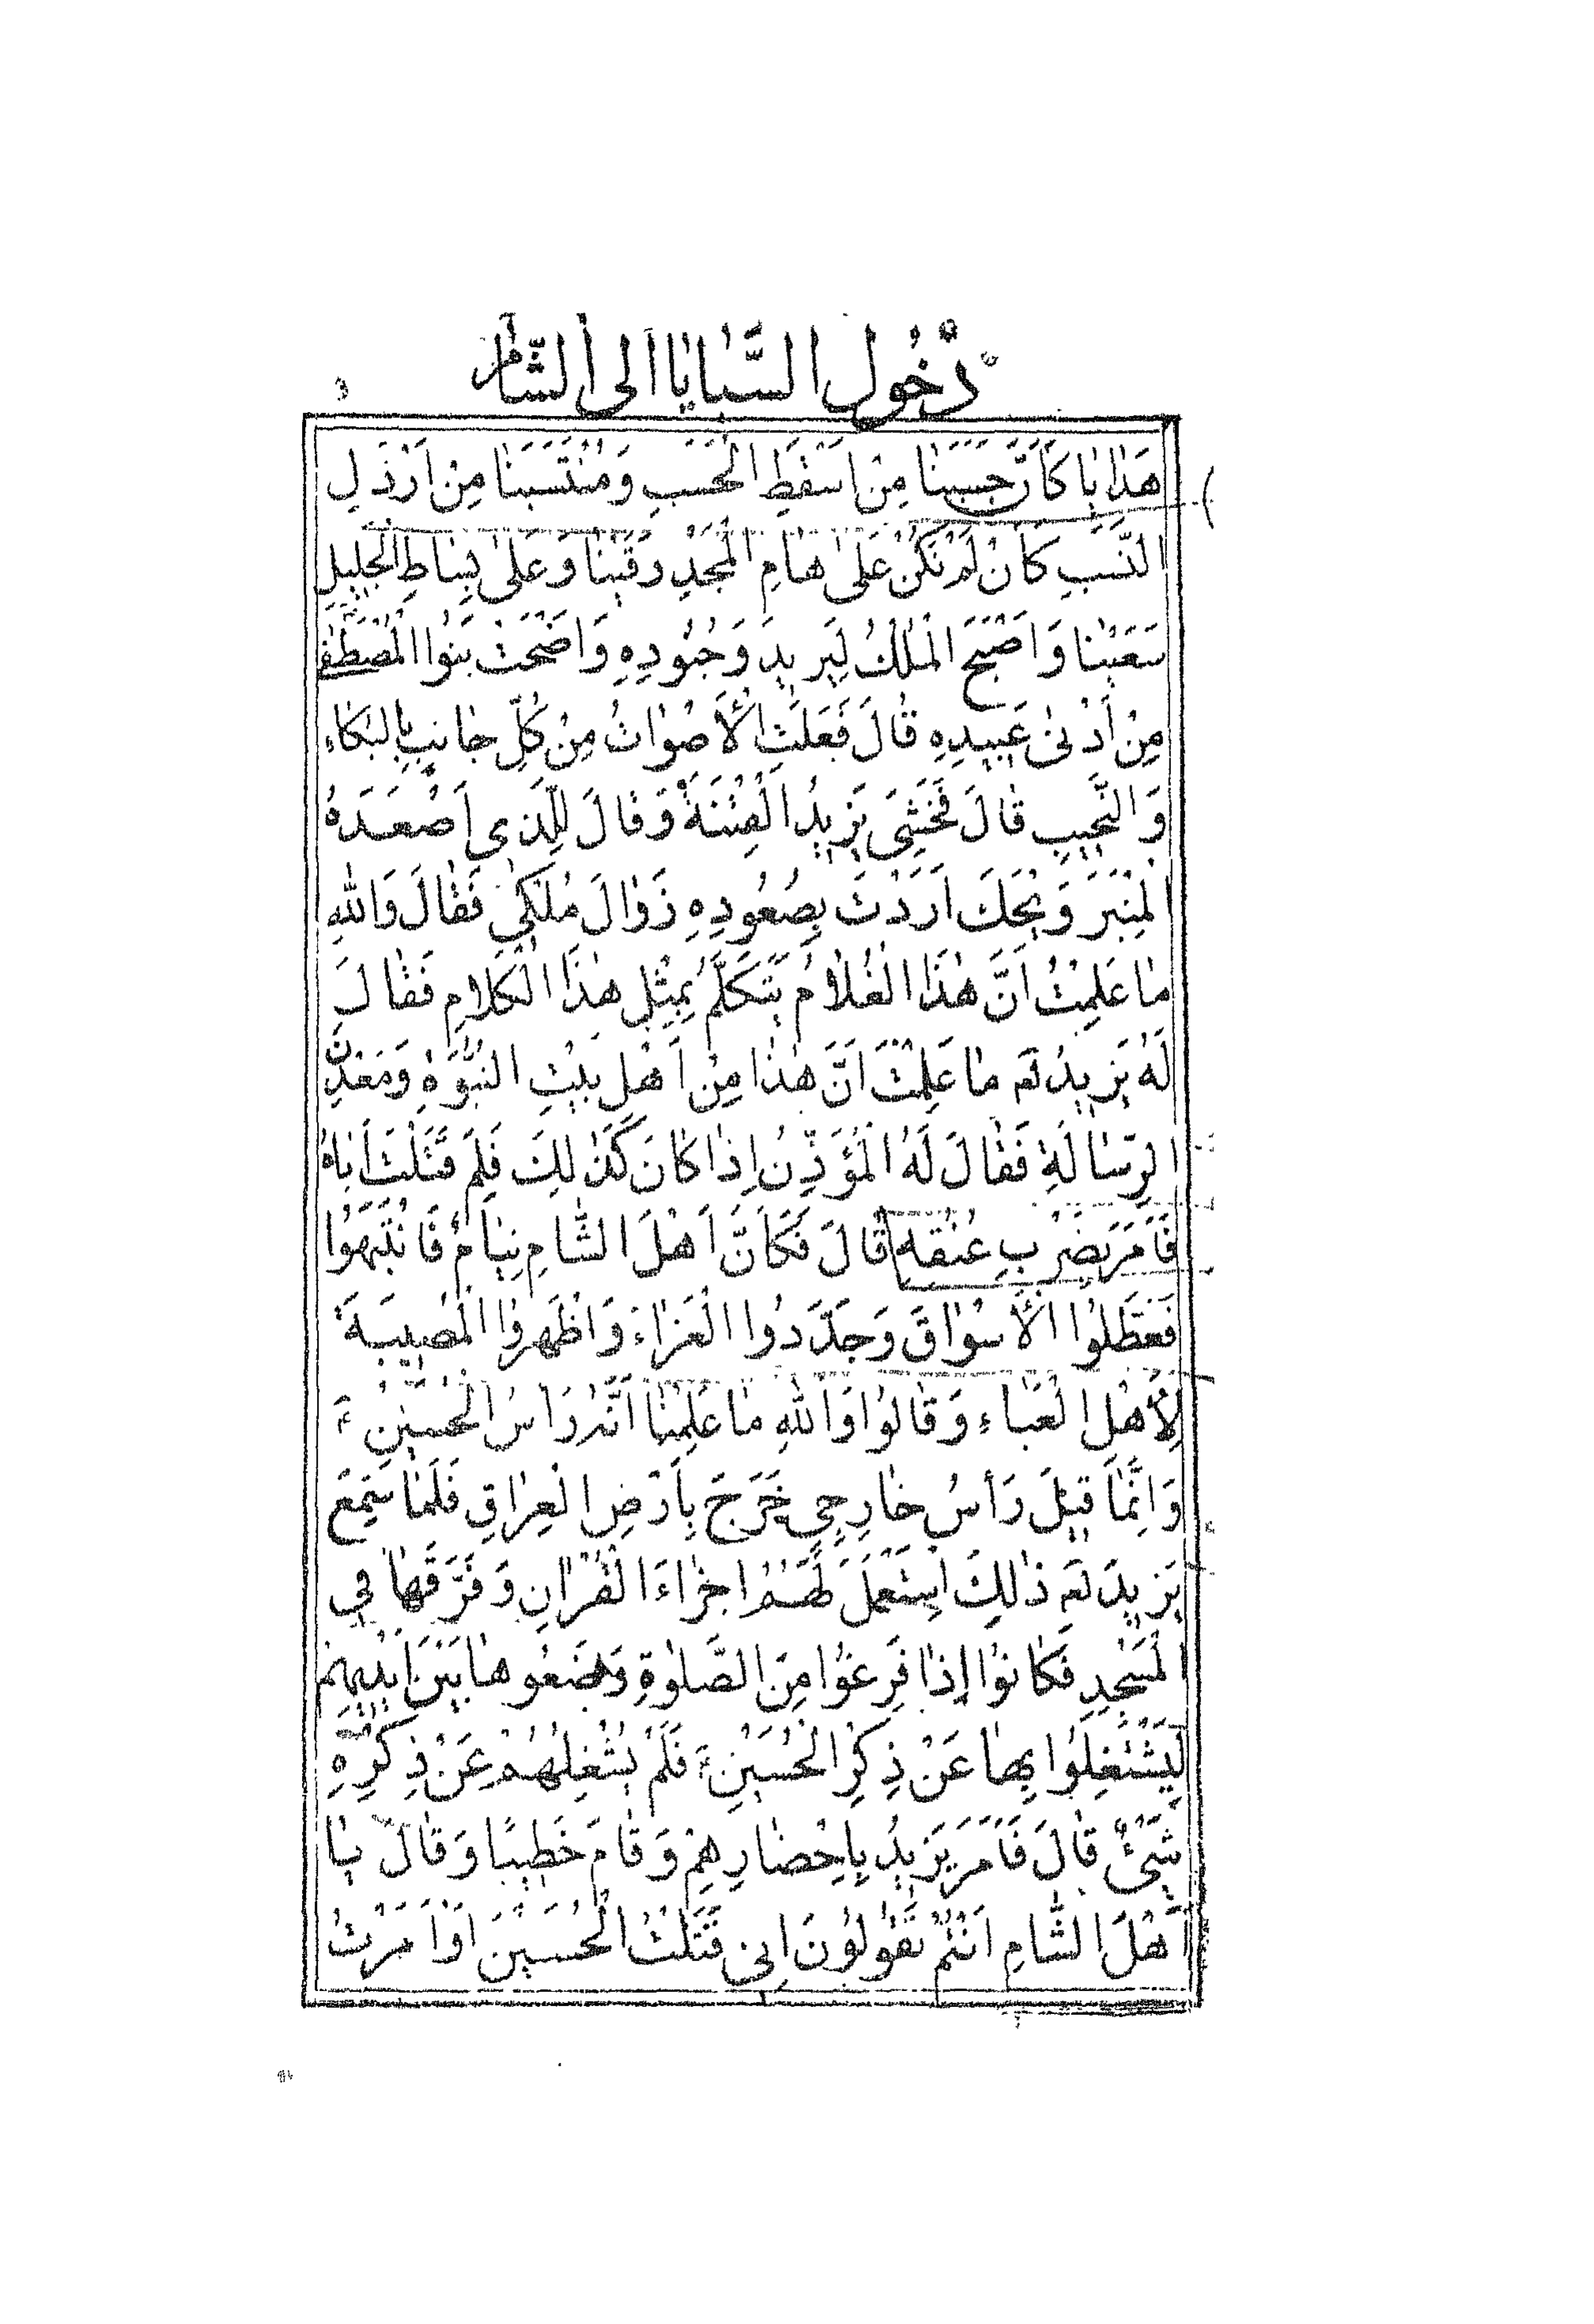 دُخُولِ السَّبَايَا اِلَى الشَّامِ
هٰذَا يَا كَاَنَّ حَسَبَنَا مِنْ اَسْقَطِ الْحَسَبِ وَمُنْتَسَبَنَا مِنْ اَرْذَلِ
النَّسَبِ كَانْ لَمْ نَكُنْ عَلٰى هَامِ الْمَجْدِ رَقَيْنَا وَعَلٰى بِسَاطِ الْجَلِيلِ
سَعَيْنَا وَاَصْبَحَ الْمُلْكُ لِيَزِيدَ وَجُنُودِهِ وَاَضْحَتْ بَنُوا الْمُصْطَفٰى
مِنْ اَدْنٰى عَبِيدِهِ قَالَ فَعَلَتِ الْاَصْوَاتُ مِنْ كُلِّ جَانِبٍ بِالْبُكَاءِ
وَالنَّحِيبِ قَالَ فَخَشِيَ يَزِيدُ الْفِتْنَةَ وَقَالَ لِلَّذِي اَصْعَدَهُ
الْمِنْبَرَ وَيْحَكَ اَرَدْتَ بِصُعُودِهِ زَوَالَ مُلْكِي فَقَالَ وَاللهِ
مَا عَلِمْتُ اَنَّ هٰذَا الْغُلَامُ يَتَكَلَّمُ بِمِثْلِ هٰذَا الْكَلَامِ فَقَالَ
لَهُ يَزِيدُ لَعَ مَا عَلِمْتَ اَنَّ هٰذَا مِنْ اَهْلِ بَيْتِ النُّبُوَّةِ وَمَعْدِنِ
الرِّسَالَةِ فَقَالَ لَهُ الْمُؤَذِّنُ اِذَا كَانَ كَذٰلِكَ فَلِمَ قَتَلْتَ اَبَاهُ
فَاَمَرَ بِضَرْبِ عُنُقِهِ قَالَ فَكَاَنَّ اَهْلَ الشَّامِ نِيَامٌ فَانْتَبَهُوا
فَعَطَّلُوا الْاَسْوَاقَ وَجَدَّدُوا الْعَزَاءَ وَاَظْهَرُوا الْمُصِيبَةَ
لِاَهْلِ الْعَبَاءِ وَقَالُوا وَاللهِ مَا عَلِمْنَا اَنَّهُ رَاْسُ الْحُسَيْنِ ع
وَاِنَّمَا قِيلَ رَأْسُ خَارِجِيٍّ خَرَجَ بِاَرْضِ الْعِرَاقِ فَلَمَّا سَمِعَ
يَزِيدُ لَعَ ذٰلِكَ اِسْتَعْمَلَ لَهُمْ اَجْزَاءَ الْقُرْاٰنِ وَفَرَّقَهَا فِي
الْمَسْجِدِ فَكَانُوا اِذَا فَرِغُوا مِنَ الصَّلٰوةِ وَضَعُوهَا بَيْنَ اَيْدِيهِمْ
لِيَشْتَغِلُوا بِهَا عَنْ ذِكْرِ الْحُسَيْنِ ع فَلَمْ يُشْغِلْهُمْ عَنْ ذِكْرِهِ
شَيْئٌ قَالَ فَاَمَرَ يَزِيدُ بِاِحْضَارِهِمْ وَقَامَ خَطِيبًا وَقَالَ يَا
اَهْلَ الشَّامِ اَنْتُمْ تَقُولُونَ اِنِّي قَتَلْتُ الْحُسَيْنَ اَوْ اَمَرْتُ